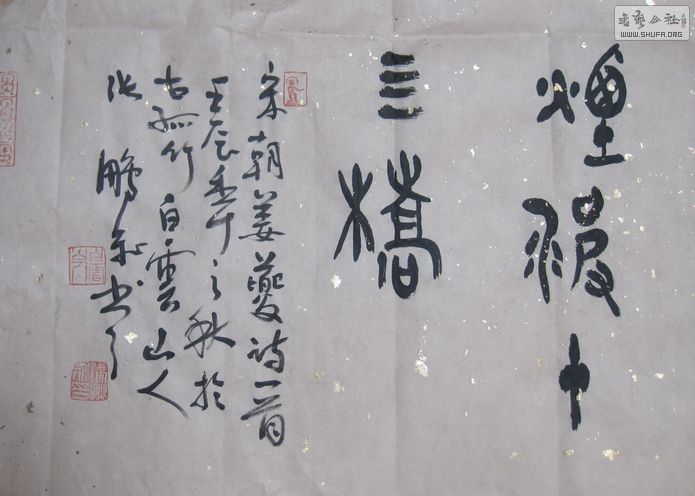 煙霞中
三橋
宋朝姜夔詩一首
壬辰年之秋於
古孤竹白雲山人
張鵬 書
書藝公社
WWW.SHUFA.ORG